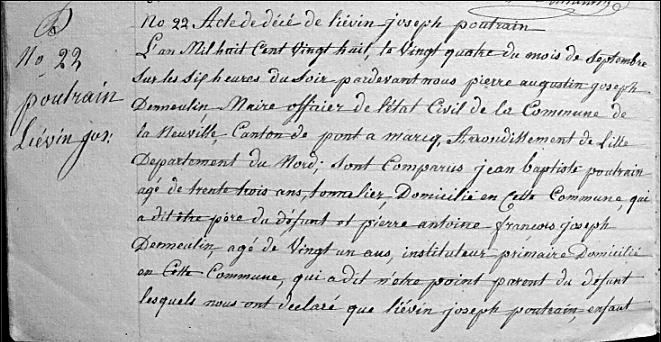 No 22
poutrain
Liévin jos:
No 22 Acte de décé de liévin joseph poutrain
L'an Mil huit Cent Vingt huit, le Vingt quatre du mois de septembre
sur les six heures du soir pardevant nous pierre augustin joseph
Demeulin Maire officier de l'état Civil de la Commune de
la Neuville, Canton de pont a marcq, Arrondissement de Lille
Departement du Nord, sont Comparus jean baptiste poutrain
agé de trente trois ans, tonnelier, Domicilié en Cette Commune, qui
a dit être père du défunt et pierre antoine françois joseph
Demeulin, agé de Vingt un ans, instituteur primaire Domicilié
en Cette Commune, qui a dit n'être point parent du défunt
lesquels nous ont declaré que liévin joseph poutrain, enfant